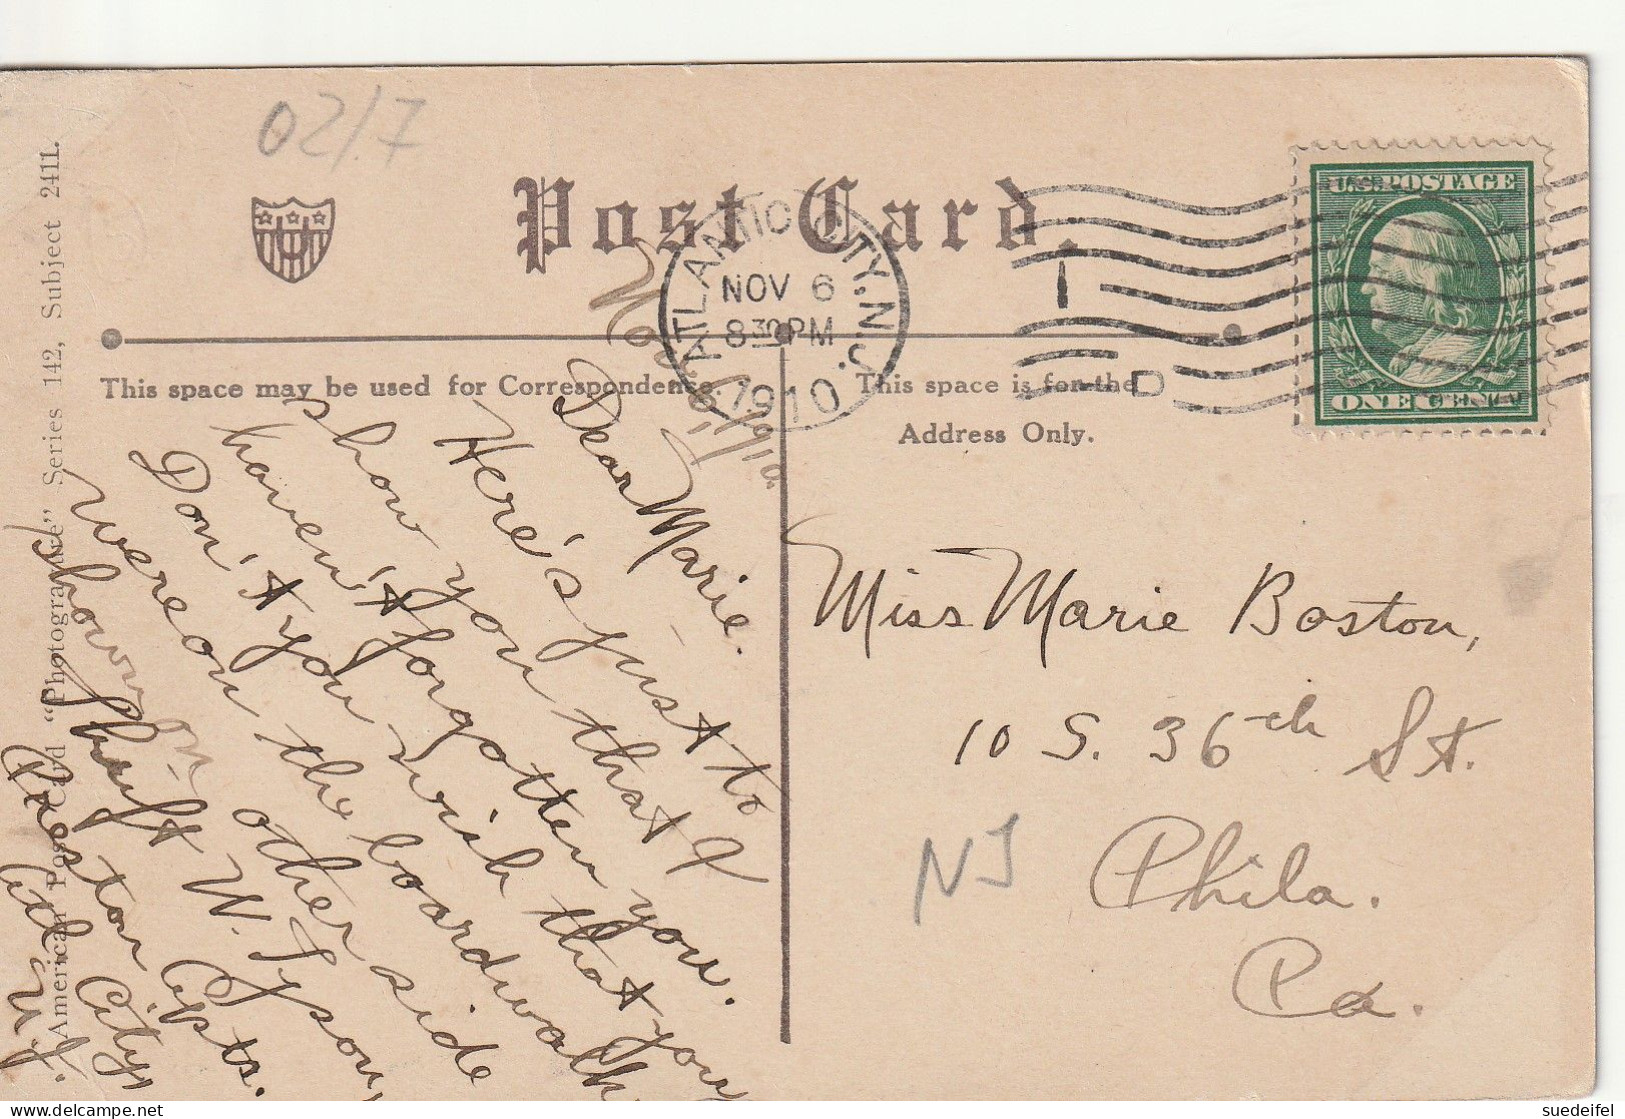 02/7
Post Card.
U.S. POSTAGE
ONE CENT
ATLANTIC CITY, N.J.
NOV 6
8 30 PM
1910
1
D
This space may be used for Correspondence.
This space is for the
Address Only.
Nov. 6, 1910.
Dear Marie.
Here's just to
show you that I
haven't forgotten you.
Don't you wish that you
were on the boardwalk
shown on other side
W. Tyson,
Preston Apts.
Atl. City,
N.J.
Miss Marie Boston,
10 S. 36th St.
Phila.
Pa.
NJ
American Post Card "Photogravure" Series 142, Subject 2411.
delcampe.net
suedeifel